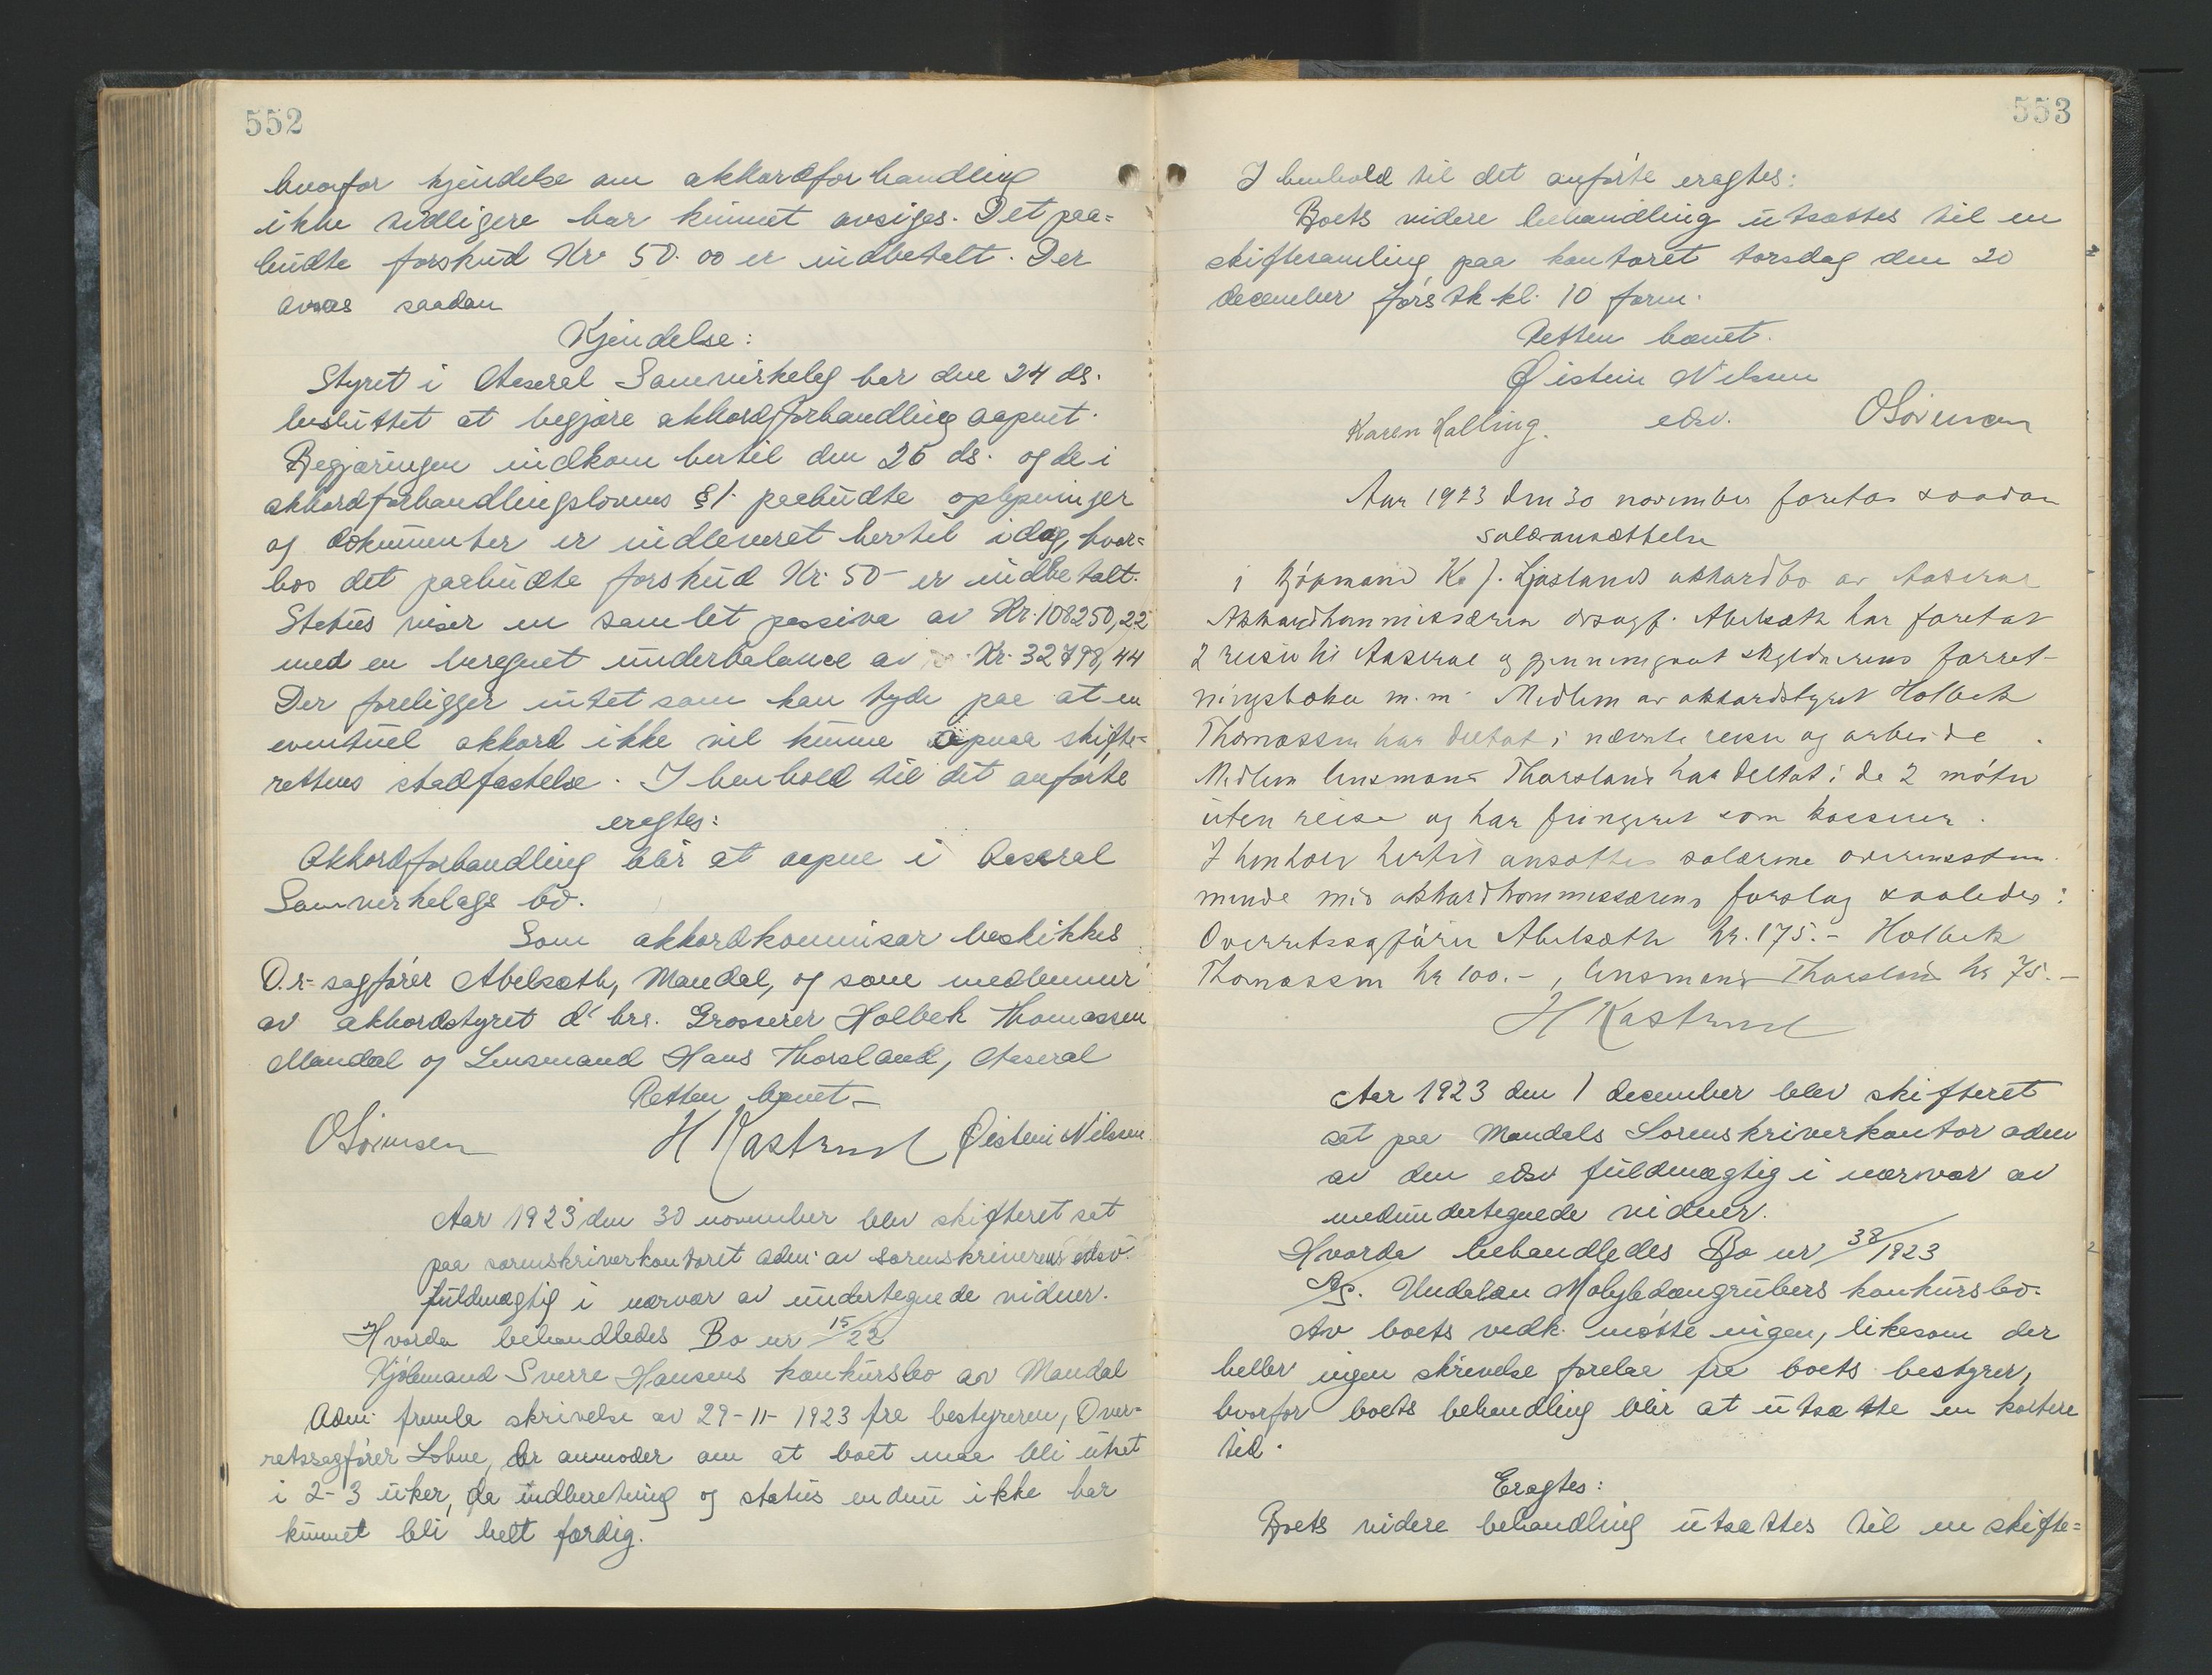 552
hvorfor kjendelse om akkordforhandling
ikke tidligere har kunnet avsiges. Det paa=
budte forskud Kr 50.00 er indbetalt. Der
avsaes saadan
Kjendelse:
Styret i Aaseral Samvirkelag har den 24 ds.
besluttet at begjære akkordforhandling aapnet.
Begjæringen indkom hertil den 26 ds. og de i
akkordforhandlingslovens §1. paabudte oplysninger
og dokumenter er indleveret hertil idag, hvor=
hos det paabudte forskud Kr. 50- er indbetalt.
Status viser en samlet passiva av Kr. 108250,22
med en beregnet underbalance av Kr. 32798,44
Der foreligger intet som kan tyde paa at en
eventuel akkord ikke vil kunne opnaa skifte=
rettens stadfæstelse. I henhold til det anførte
eragtes:
Akkordforhandling blir at aapne i Aaseral
Samvirkelags bo.
Som akkordkommisær beskikkes
O.r=sagfører Abelsæth, Mandal, og som medlemmer
av akkordstyret d' hrr. Grosserer Holbek Thomassen
Mandal og Lensmand Hans Thorsland, Aaseral
Retten hævet-
O Sørensen H Kastrud Øistein Nilssen
Aar 1923 den 30 november blev skifteret sat
paa sorenskriverkontoret adm. av sorenskriverens edsv.
fuldmægtig i nærvær av undertegnede vidner.
Hvorda behandledes Bo nr 15/22
Kjøbmand Sverre Hansens konkursbo av Mandal
Adm. fremla skrivelse av 29-11-1923 fra bestyreren, Over=
retssagfører Lohne, der anmoder om at boet maa bli utsat
i 2-3 uker, da indberetning og status endnu ikke har
kunnet bli helt færdig.
553
I henhold til det anførte eragtes:
Boets videre behandling utsættes til en
skiftesamling paa kontoret torsdag den 20
december førstk kl. 10 form.
Retten hævet.
Øistein Nilssen
Karen Halling. edsv. O Sørensen
Aar 1923 den 30 november foretas saadan
salæransættelse
i Kjøpmand K. J. Ljoslands akkordbo av Aaseral
Akkordkommissæren orsagf. Abelsæth har foretat
2 reiser til Aaseral og gjennemgaat skyldnerens forret-
ningsbøker m.m. Medlem av akkordstyret Holbek
Thomassen har deltat i nævnte reiser og arbeide.
Medlem lensmand Thorsland har deltat i de 2 møter
uten reise og har fungeret som kasserer.
I henhold hertil ansættes salærene overensstem-
mende med akkordkommissærens forslag saaledes:
Overretssagfører Abelsæth kr. 175.- Holbek
Thomassen kr 100.-, lensmand Thorsland kr 75.-
H Kastrud
Aar 1923 den 1 december blev skifteret
sat paa Mandals Sorenskriverkontor adm
av den edsv fuldmægtig i nærvær av
medundertegnede vidner.
Hvorda behandledes Bo nr 38/1923
A/S. Undelan Molybdængrubers konkursbo.
Av boets vedk. møtte ingen, likesom der
heller ingen skrivelse forelaa fra boets bestyrer,
hvorfor boets behandling blir at utsætte en kortere
tid.
Eragtes:
Boets videre behandling utsættes til en skifte=